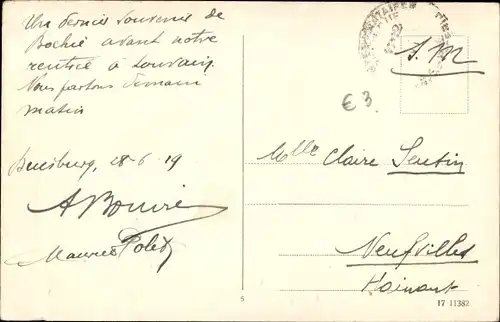 Un dernier souvenir de
Bochie avant notre
rentrée à Louvain.
Nous partons demain
matin
Duisburg, 18-6-19
A Bouvré
Maurice
S. M
€ 3.
Mlle Claire Sentin
Neufvilles
Hainaut
5
17 11382